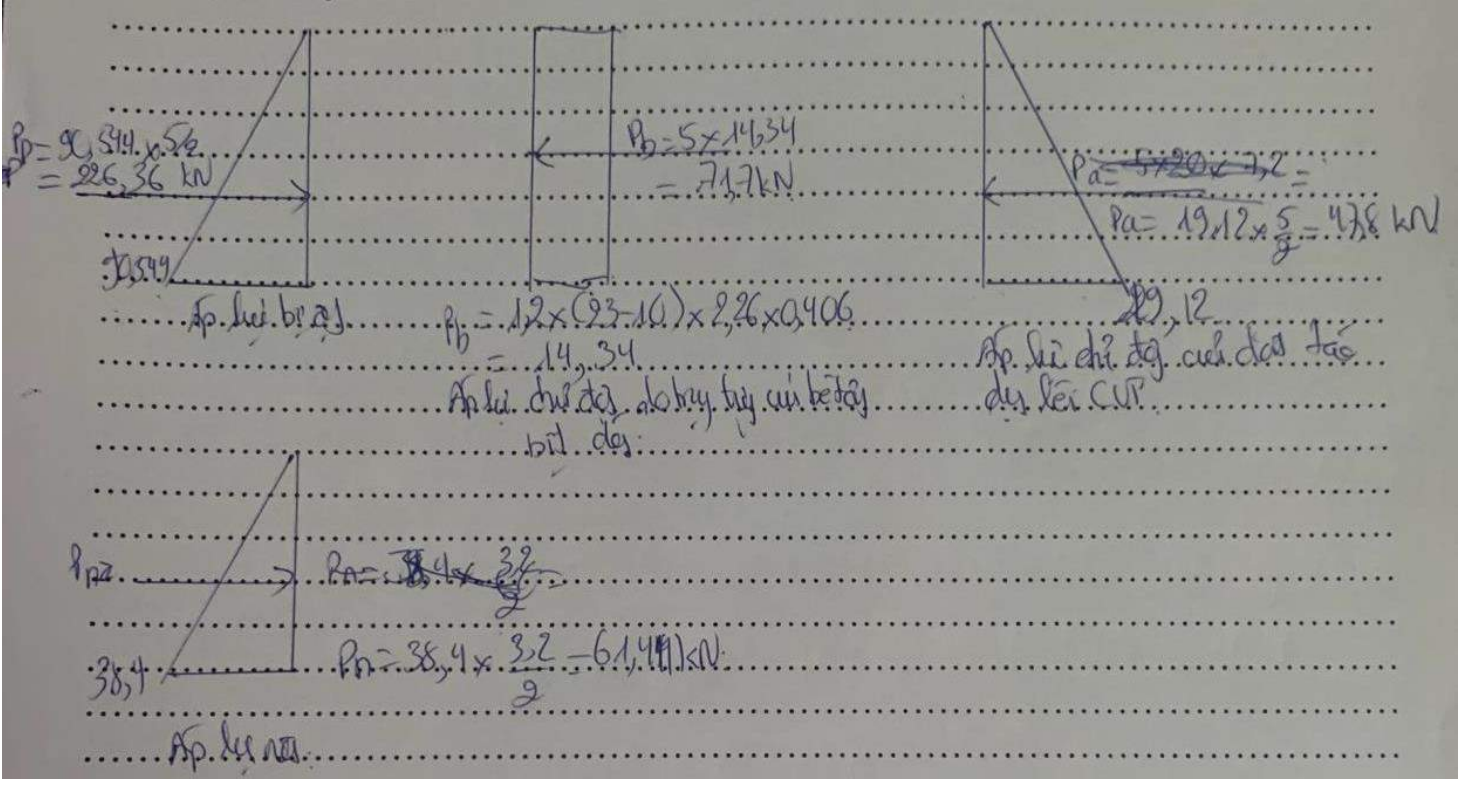 Pp = 90,544 x 5/2
= 226,36 kN
90,544
Áp lực bị động
Pb = 5 x 14,34
= 71,7 kN
Pb = 1,2 x (23-10) x 2,26 x 0,406
= 14,34
Áp lực chủ động do trọng lượng của bê tông
bịt đáy
Pa = 5x20x7,2 =
Pa = 19,12 x 5/2 = 47,8 kN
19,12
Áp lực chủ động của đất tác
dụng lên CVT
Pn2
Pn = 38,4 x 3,2/2 =
Pn = 38,4 x 3,2/2 = 61,44 kN
38,4
Áp lực nước